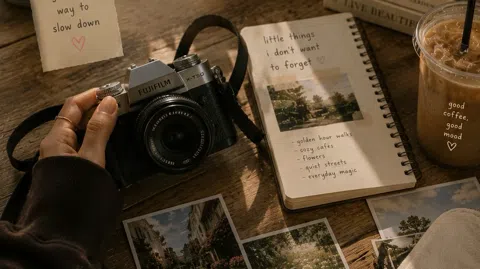 way to
slow down
♡
FUJIFILM
X-T30
little things
i don't want
to forget ♡
golden hour walks
- cozy cafés
- flowers
- quiet streets
- everyday magic
LIVE BEAUTIF
good
coffee,
good
mood
♡